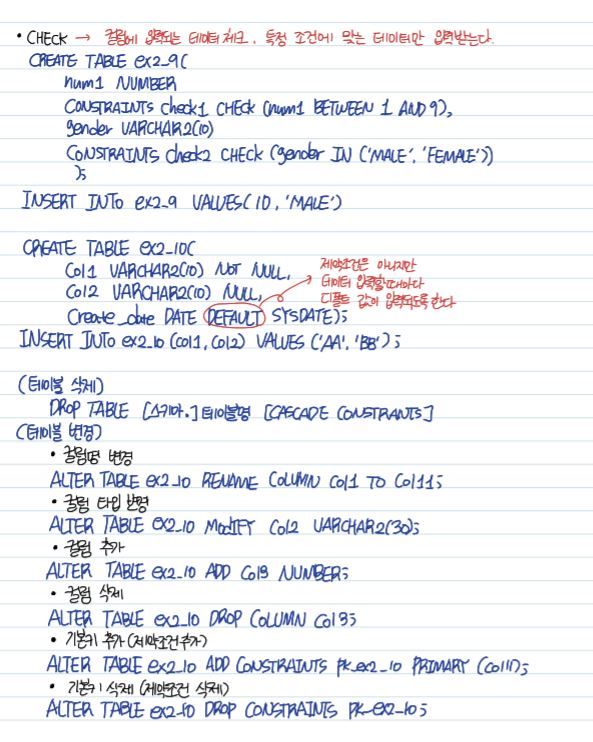 • CHECK → 컬럼에 입력되는 데이터 체크, 특정 조건에 맞는 데이터만 입력받는다.
CREATE TABLE ex2_9(
num1 NUMBER
CONSTRAINTS check1 CHECK (num1 BETWEEN 1 AND 9),
gender VARCHAR2(10)
CONSTRAINTS check2 CHECK (gender IN ('MALE', 'FEMALE'))
);
INSERT INTO ex2_9 VALUES(10, 'MALE')
CREATE TABLE ex2_10(
Col1 VARCHAR2(10) NOT NULL,
Col2 VARCHAR2(10) NULL,
Create_date DATE DEFAULT SYSDATE);
제약조건은 아니지만
데이터 입력할때마다
디폴트 값이 입력되도록 한다
INSERT INTO ex2_10 (col1, col2) VALUES ('AA', 'BB');
(테이블 삭제)
DROP TABLE [스키마.]테이블명 [CASCADE CONSTRANTS]
(테이블 변경)
• 컬럼명 변경
ALTER TABLE ex2_10 RENAME COLUMN Col1 TO Col11;
• 컬럼 타입 변경
ALTER TABLE ex2_10 MODIFY Col2 VARCHAR2(30);
• 컬럼 추가
ALTER TABLE ex2_10 ADD Col3 NUMBER;
• 컬럼 삭제
ALTER TABLE ex2_10 DROP COLUMN Col3;
• 기본키 추가 (제약조건 추가)
ALTER TABLE ex2_10 ADD CONSTRAINTS pk_ex2_10 PRIMARY (Col11);
• 기본키 삭제 (제약조건 삭제)
ALTER TABLE ex2_10 DROP CONSTRAINTS pk_ex2_10;